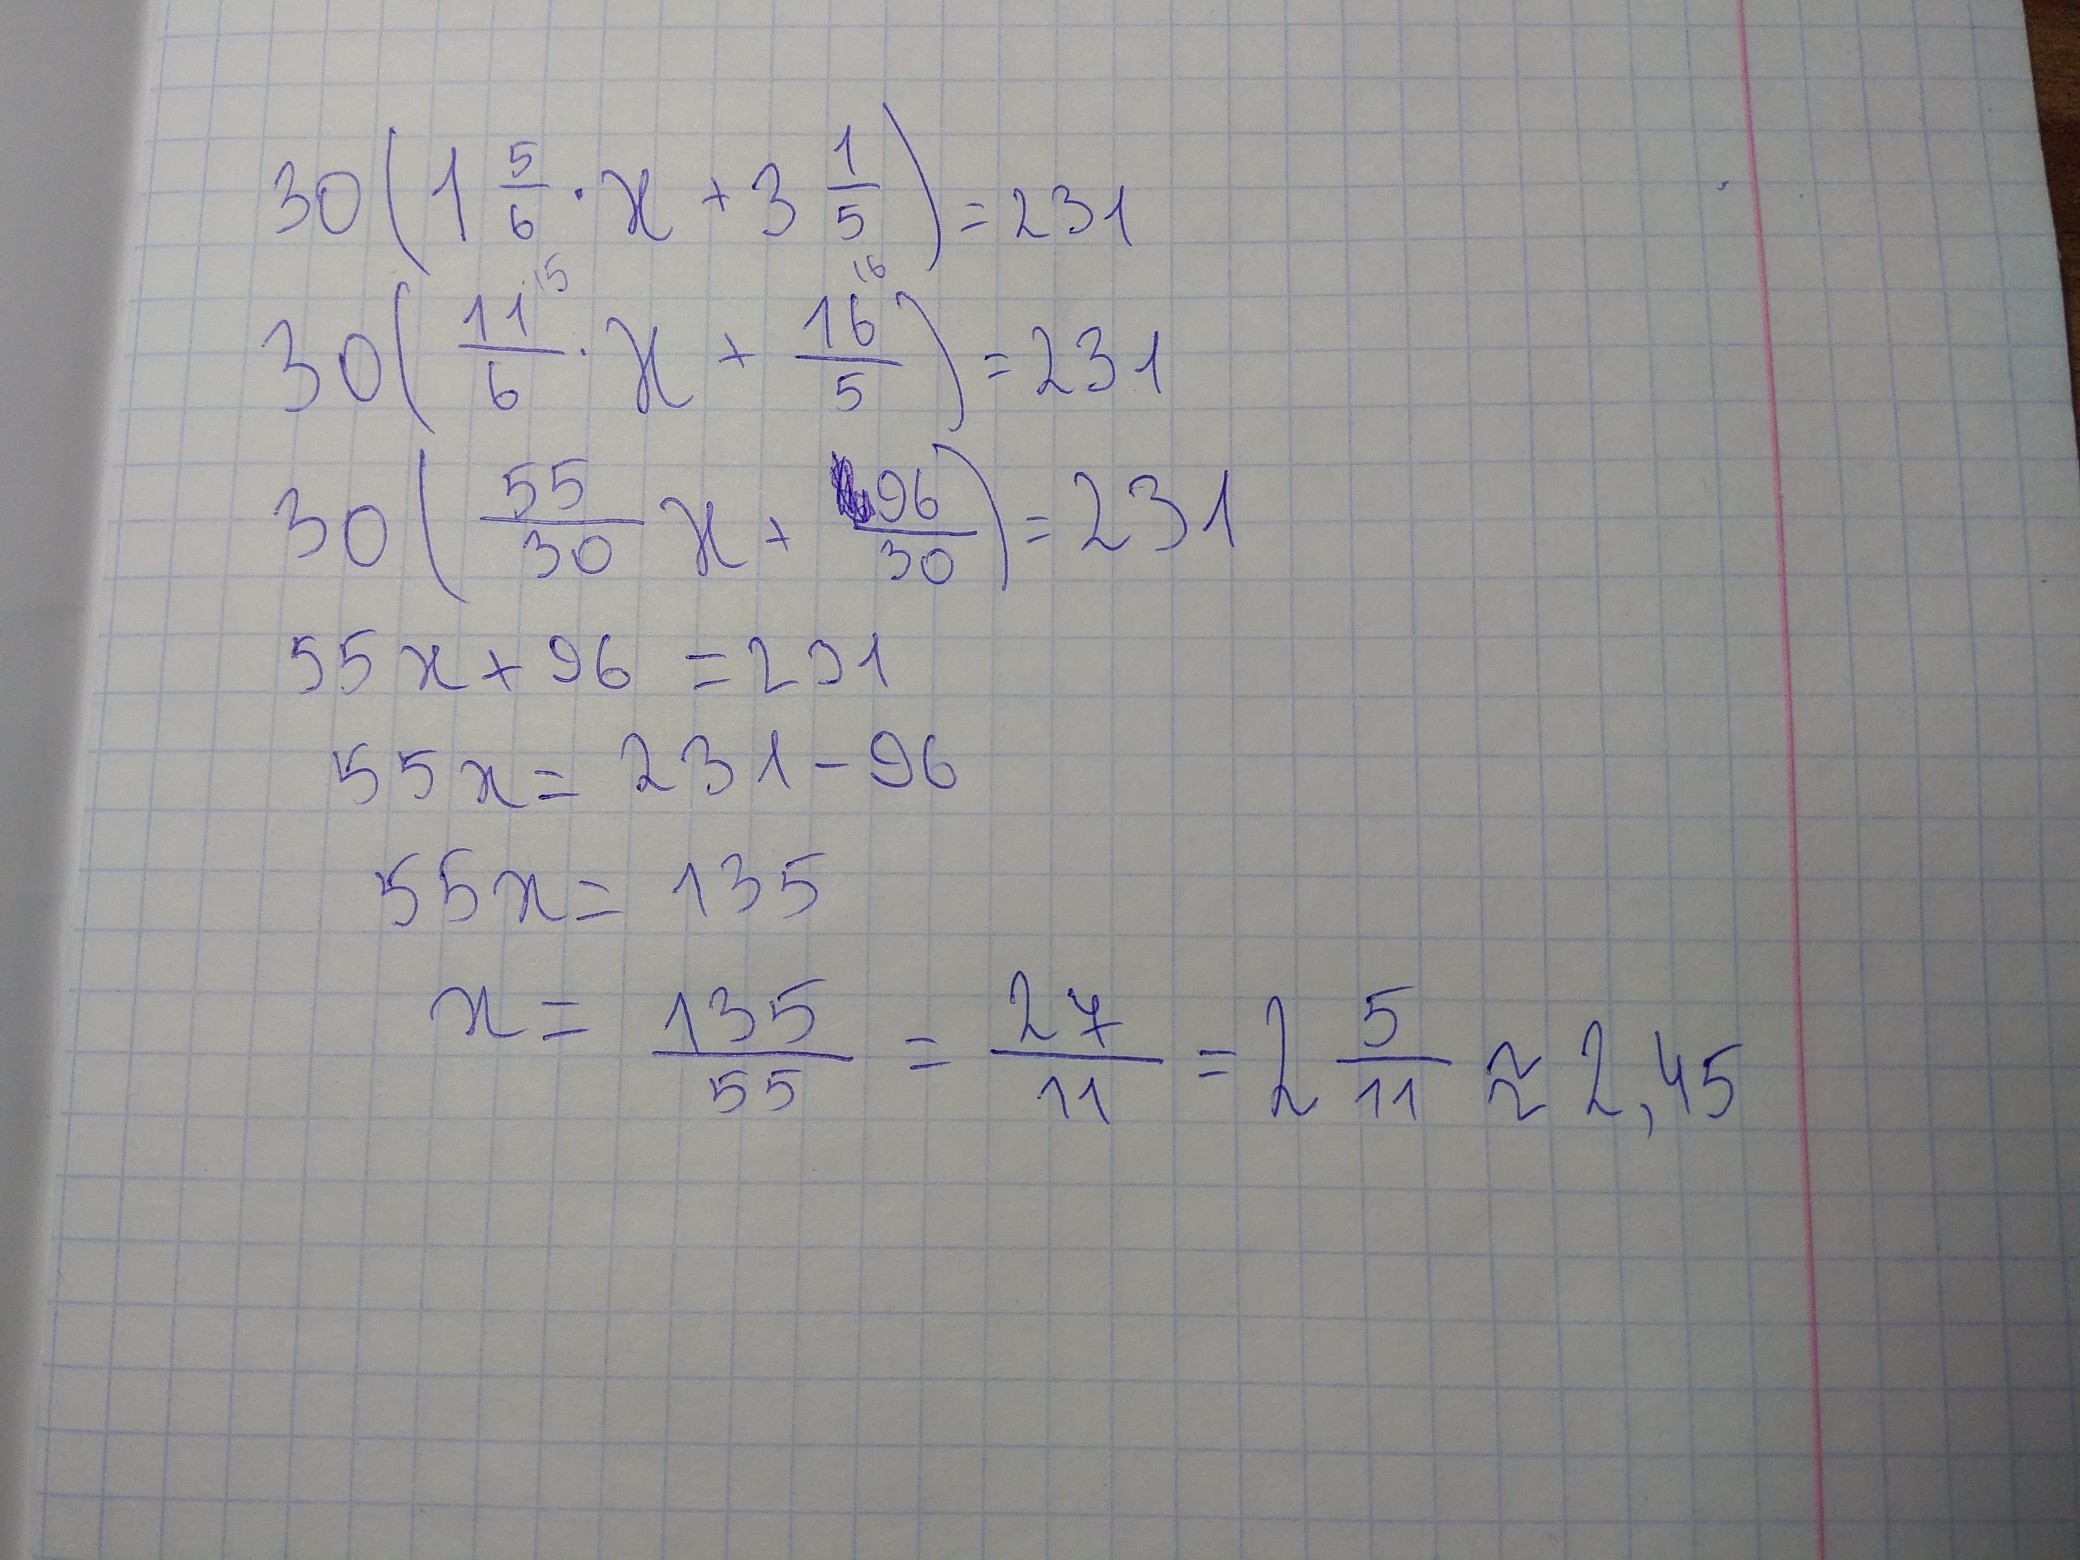 30(1 5/6 · x + 3 1/5) = 231
30(11/6 ⁵ · x + 16/5 ⁶) = 231
30(55/30 x + 96/30) = 231
55x + 96 = 231
55x = 231 - 96
55x = 135
x = 135/55 = 27/11 = 2 5/11 ≈ 2,45